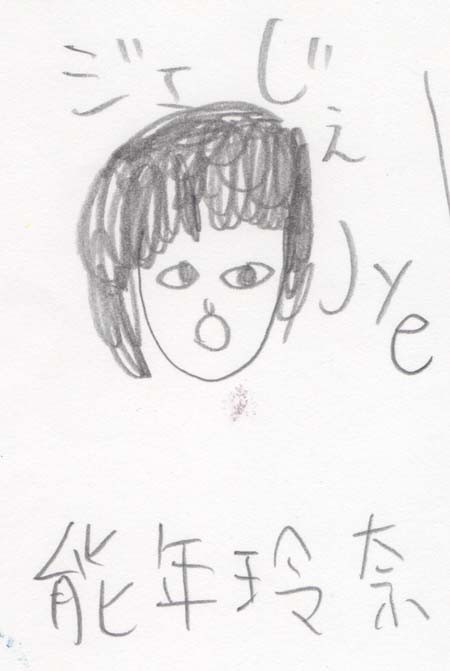 ジェ
じぇ
Jye
能年玲奈